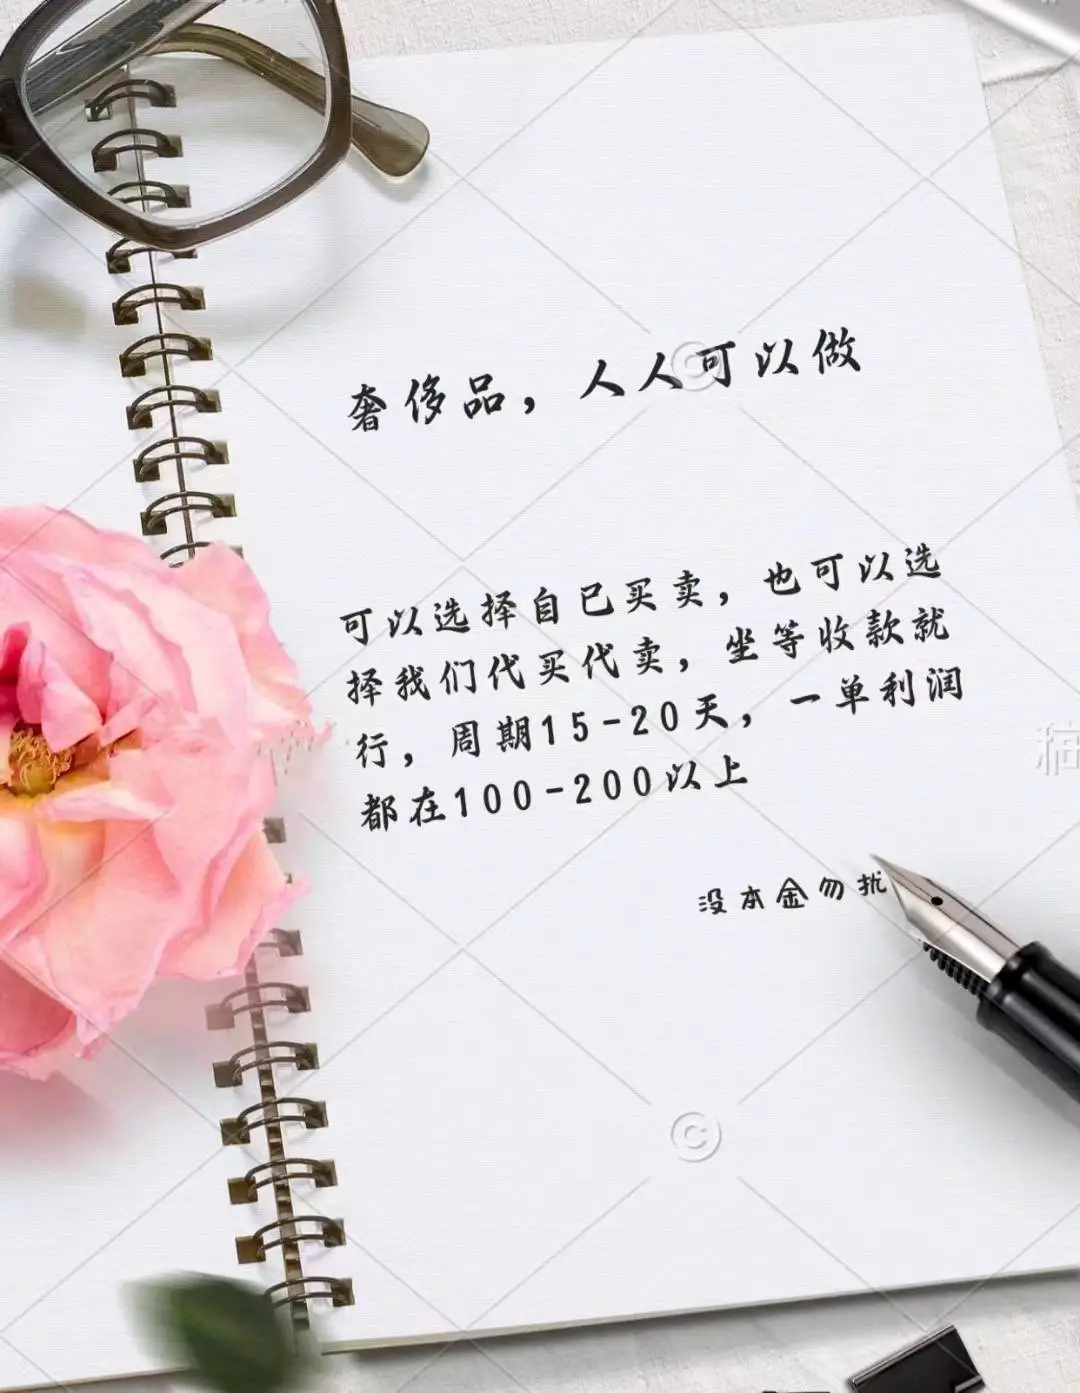 奢侈品，人人可以做
可以选择自已买卖，也可以选
择我们代买代卖，坐等收款就
行，周期15-20天，一单利润
都在100-200以上
没本金勿扰